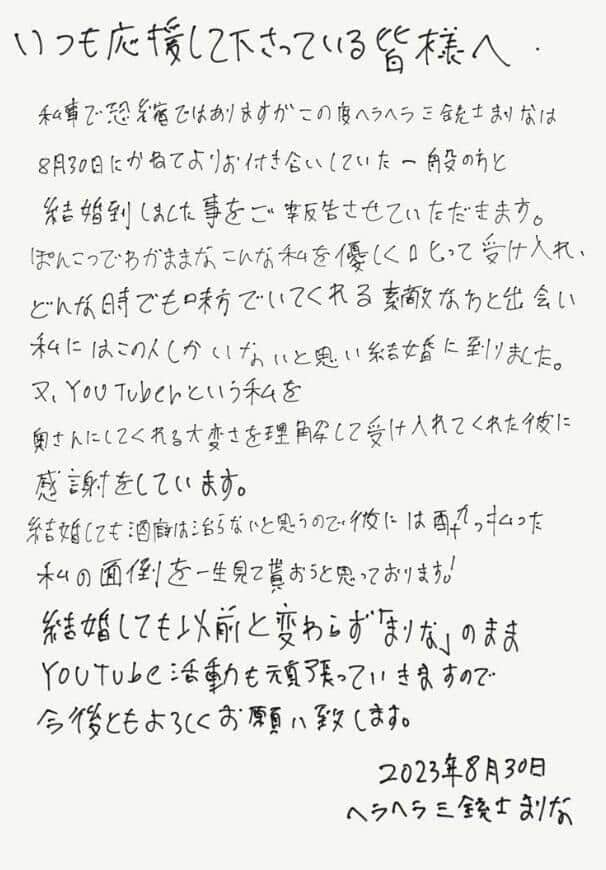 いつも応援して下さっている皆様へ.
私事で恐縮ではありますがこの度ヘラヘラ三銃士まりなは
8月30日にかねてよりお付き合いしていた一般の方と
結婚到しました事をご報告させていただきます。
ぽんこつでわがままなこんな私を優しく叱って受け入れ、
どんな時でも味方でいてくれる素敵な方と出会い
私にはこの人しかいないと思い結婚に到りました。
又、YOUTuberという私を
奥さんにしてくれる大変さを理解して受け入れてくれた彼に
感謝をしています。
結婚しても酒癖は治らないと思うので彼には酔っ払った
私の面倒を一生見て貰おうと思っております!
結婚しても以前と変わらず「まりな」のまま
YOUTube活動も頑張っていきますので
今後ともよろしくお願い致します。
2023年8月30日
ヘラヘラ三銃士まりな